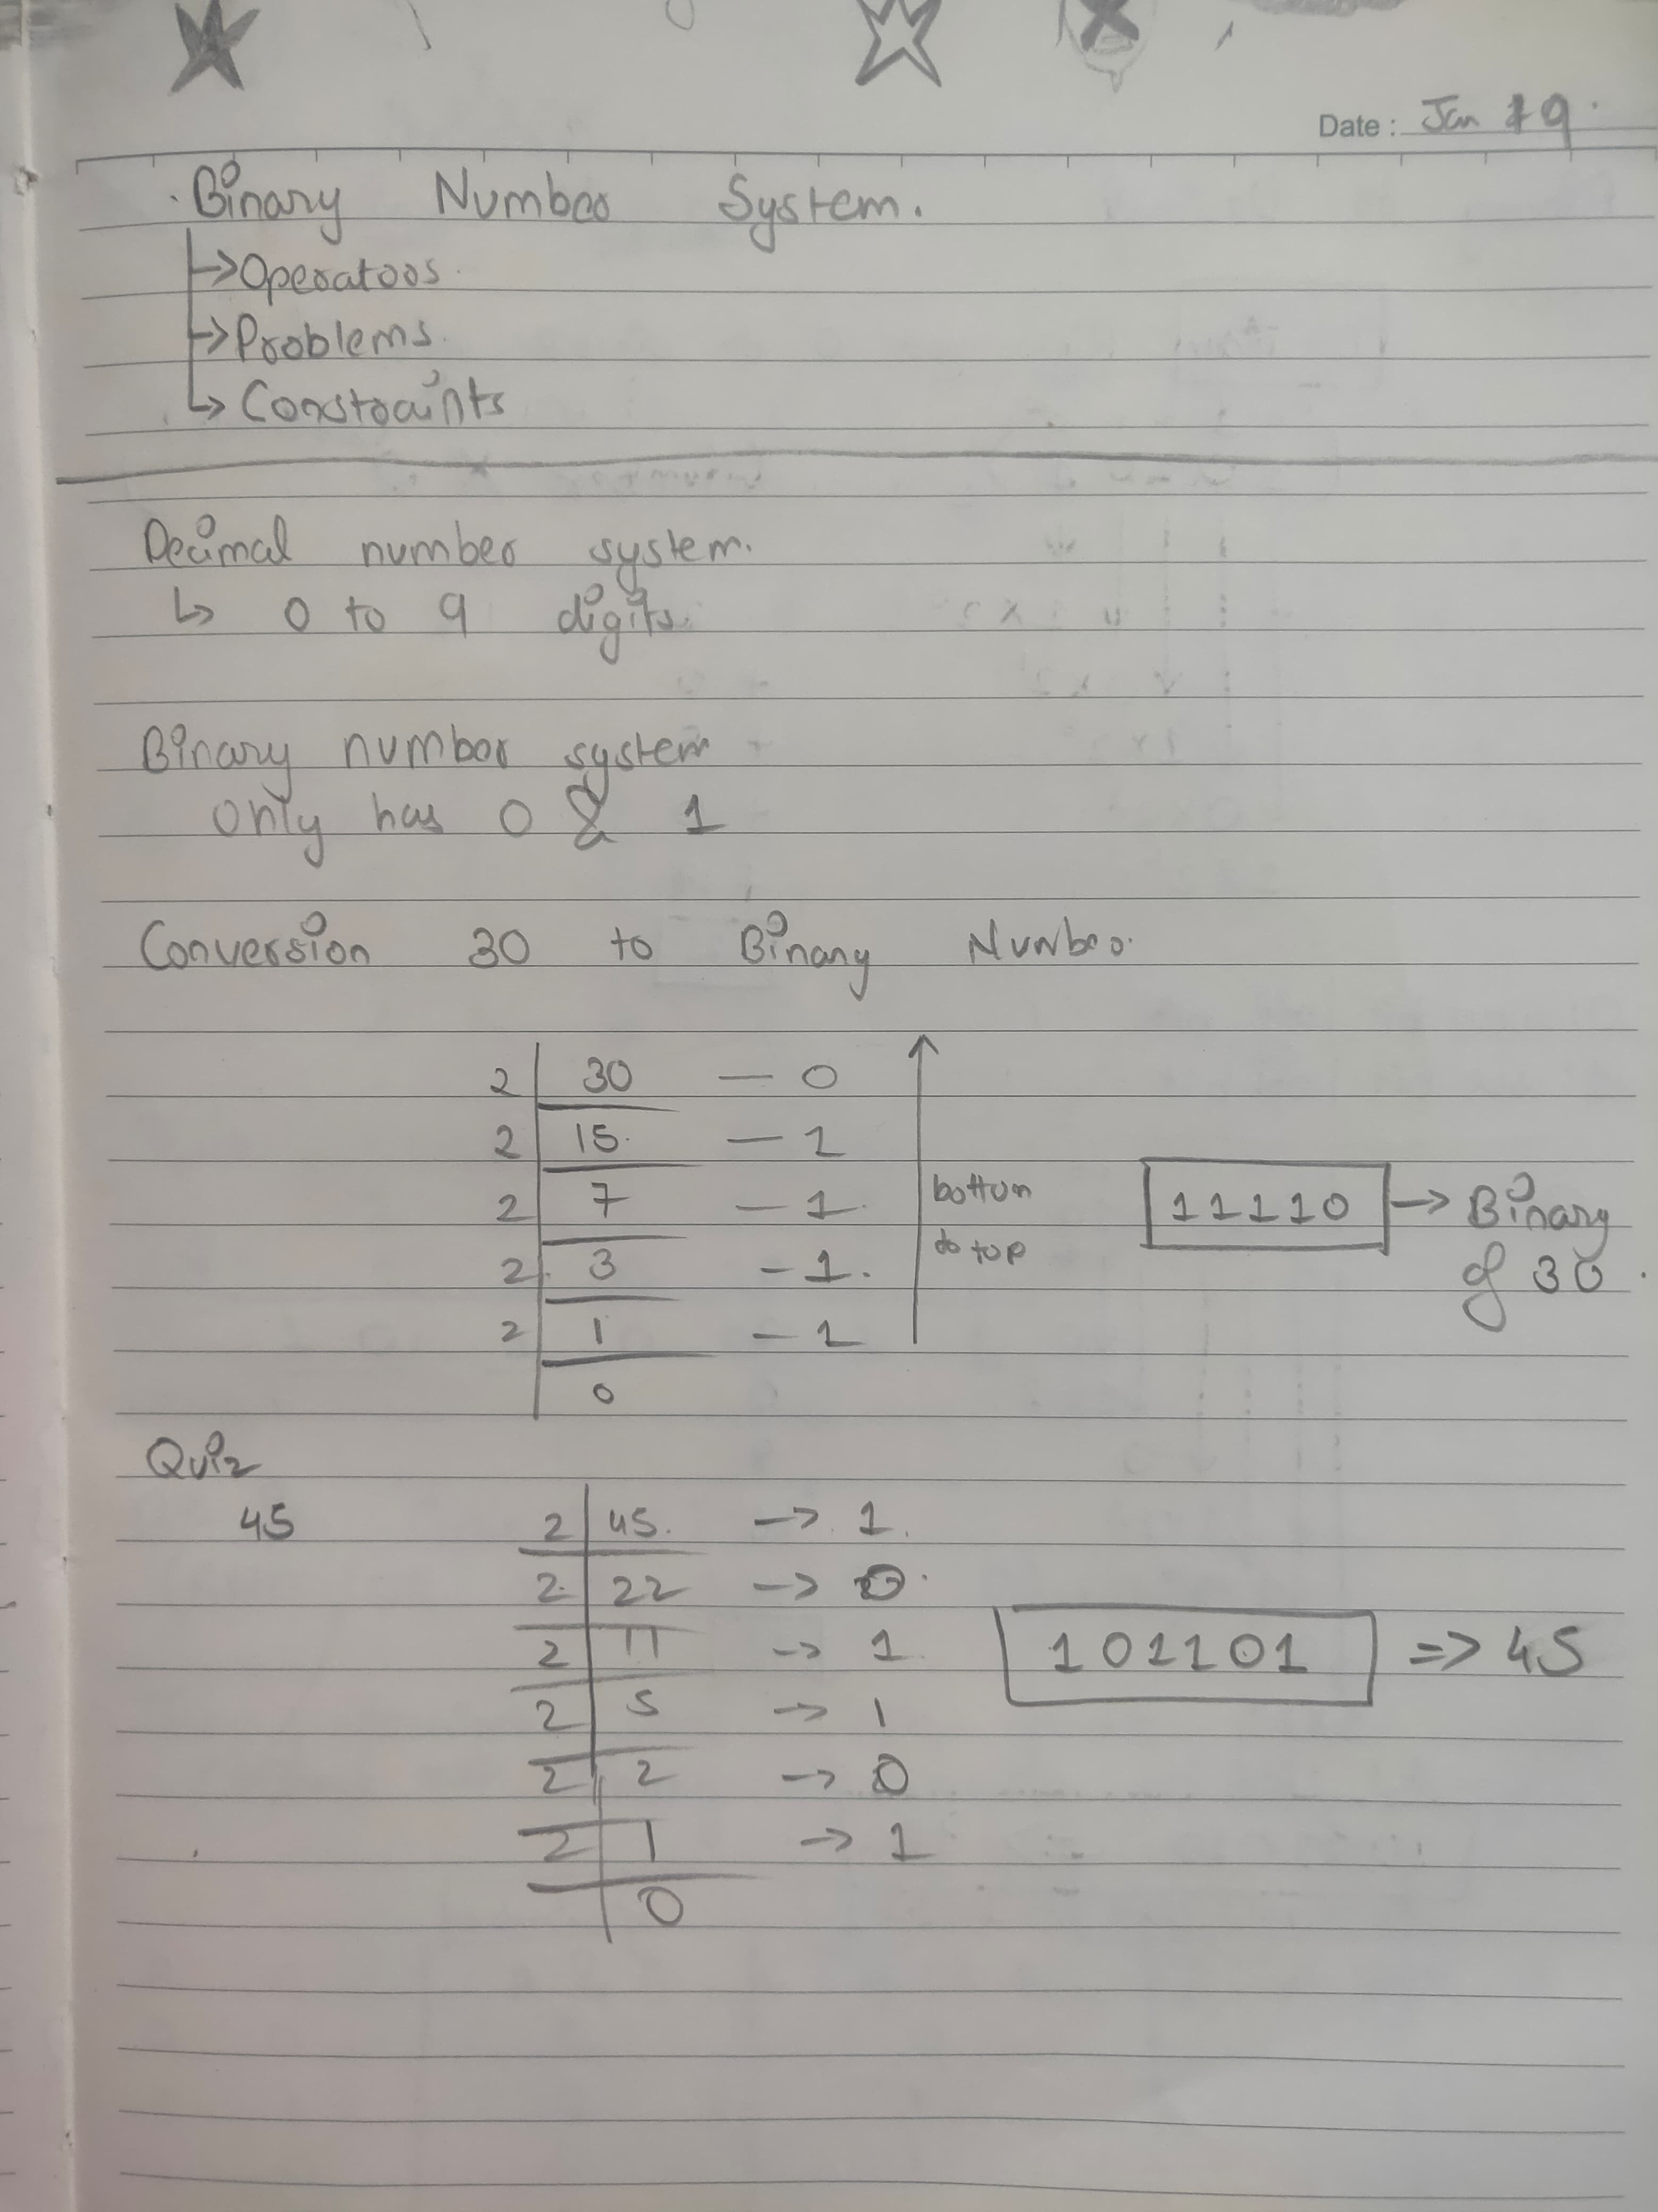 Date : Jan 19.
Binary Number System.
→ Operators.
→ Problems.
↳ Constraints
Decimal number system.
↳ 0 to 9 digits.
Binary number system
only has 0 & 1
Conversion 30 to Binary Number.
2 | 30 — 0
2 | 15. — 1
2 | 7 — 1.
2 | 3 — 1.
2 | 1 — 1
0
bottom
to top
11110 → Binary
of 30.
Quiz
45
2 | 45. → 1.
2. | 22 → 0.
2 | 11 → 1
2 | 5 → 1
2 | 2 → 0
2 | 1 → 1
0
101101 => 45